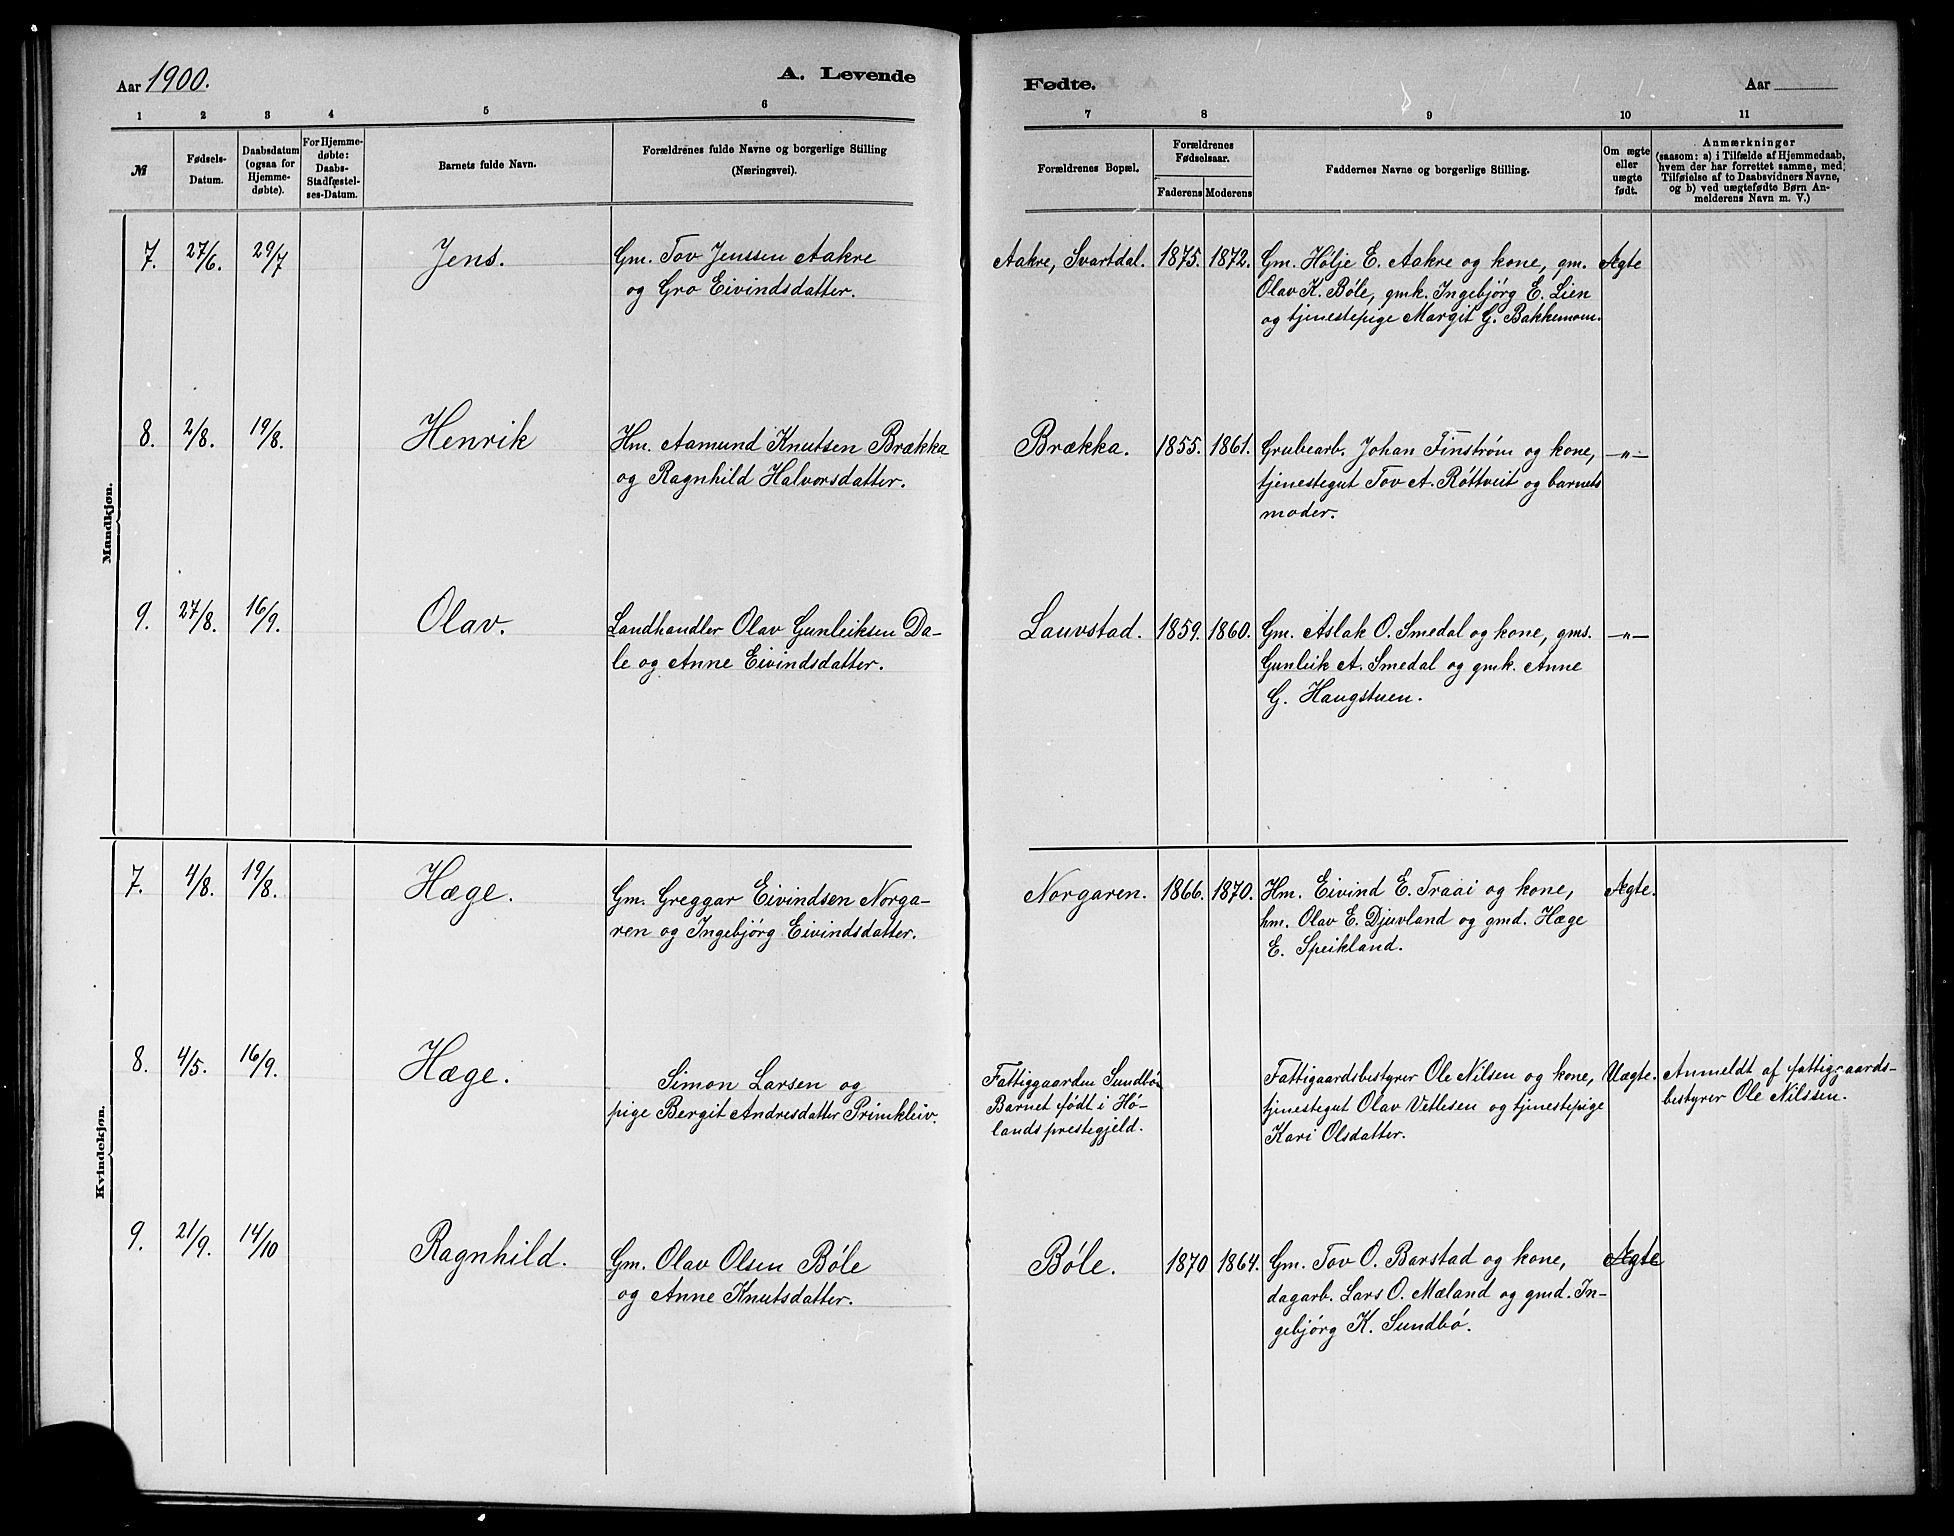 Aar 1900.
A. Levende
Fødte.
Aar
1 2 3 4 5 6 7 8 9 10 11
№
Fødsels-
Datum.
Daabsdatum
(ogsaa for
Hjemme-
døbte).
For Hjemme-
døbte:
Daabs-
Stadfæstel-
ses-Datum.
Barnets fulde Navn.
Forældrenes fulde Navne og borgerlige Stilling
(Næringsvei).
Forældrenes Bopæl.
Forældrenes
Fødselsaar.
Faderens Moderens
Faddernes Navne og borgerlige Stilling.
Om ægte
eller
uægte
født.
Anmærkninger
(saasom: a) i Tilfælde af Hjemmedaab,
hvem der har forrettet samme, med
Tilføielse af to Daabsvidners Navne,
og b) ved uægtefødte Børn An-
melderens Navn m. V.)
Mandkjøn.
7. 27/6. 29/7 Jens.
Gm. Tov Jenssen Aakre
og Gro Eivindsdatter.
Aakre, Svartdal. 1875. 1872.
Gm. Hølje E. Aakre og kone, gm.
Olav K. Bøle, gmk. Ingebjørg E. Lien
og tjenestepige Margit G. Bakkemom.
Ægte
8. 2/8. 19/8. Henrik
Hm. Aamund Knutsen Brækka
og Ragnhild Halvorsdatter.
Brækka. 1855. 1861.
Grubearb. Johan Finstrøm og kone,
tjenestegut Tov A. Røttveit og barnets
moder.
—"—
9. 27/8. 16/9. Olav.
Landhandler Olav Gunleiksen Da-
le og Anne Eivindsdatter.
Lauvstad. 1859. 1860.
Gm. Aslak O. Smedal og kone, gms.
Gunleik A. Smedal og gmk. Anne
G. Haugstuen.
—"—
Kvindekjøn.
7. 4/8. 19/8. Hæge.
Gm. Greggar Eivindsen Norga-
ren og Ingebjørg Eivindsdatter.
Norgaren. 1866. 1870.
Hm. Eivind E. Traai og kone,
hm. Olav E. Djuvland og gmd. Hæge
E. Speikland.
Ægte.
8. 4/5. 16/9. Hæge.
Simon Larsen og
pige Bergit Andresdatter Primkleiv.
Fattiggaarden Sundbø
Barnet født i Hø-
lands prestegjeld.
Fattigaardsbestyrer Ole Nilsen og kone,
tjenestegut Olav Vetlesen og tjenestepige
Kari Olsdatter.
Uægte.
Anmeldt af fattiggaards-
bestyrer Ole Nilssen.
9. 21/9. 14/10 Ragnhild.
Gm. Olav Olsen Bøle
og Anne Knutsdatter.
Bøle. 1870 1864.
Gm. Tov O. Barstad og kone,
dagarb. Lars O. Mæland og gmd. In-
gebjørg K. Sundbø.
Ægte